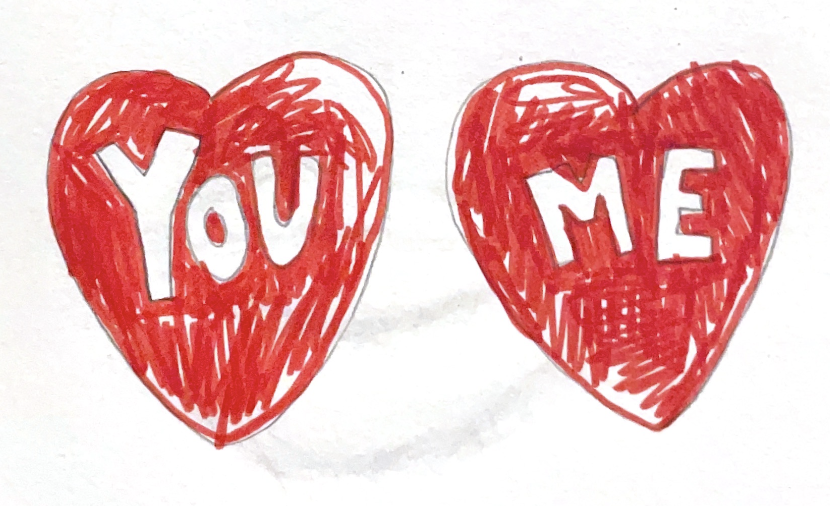 YoU
ME